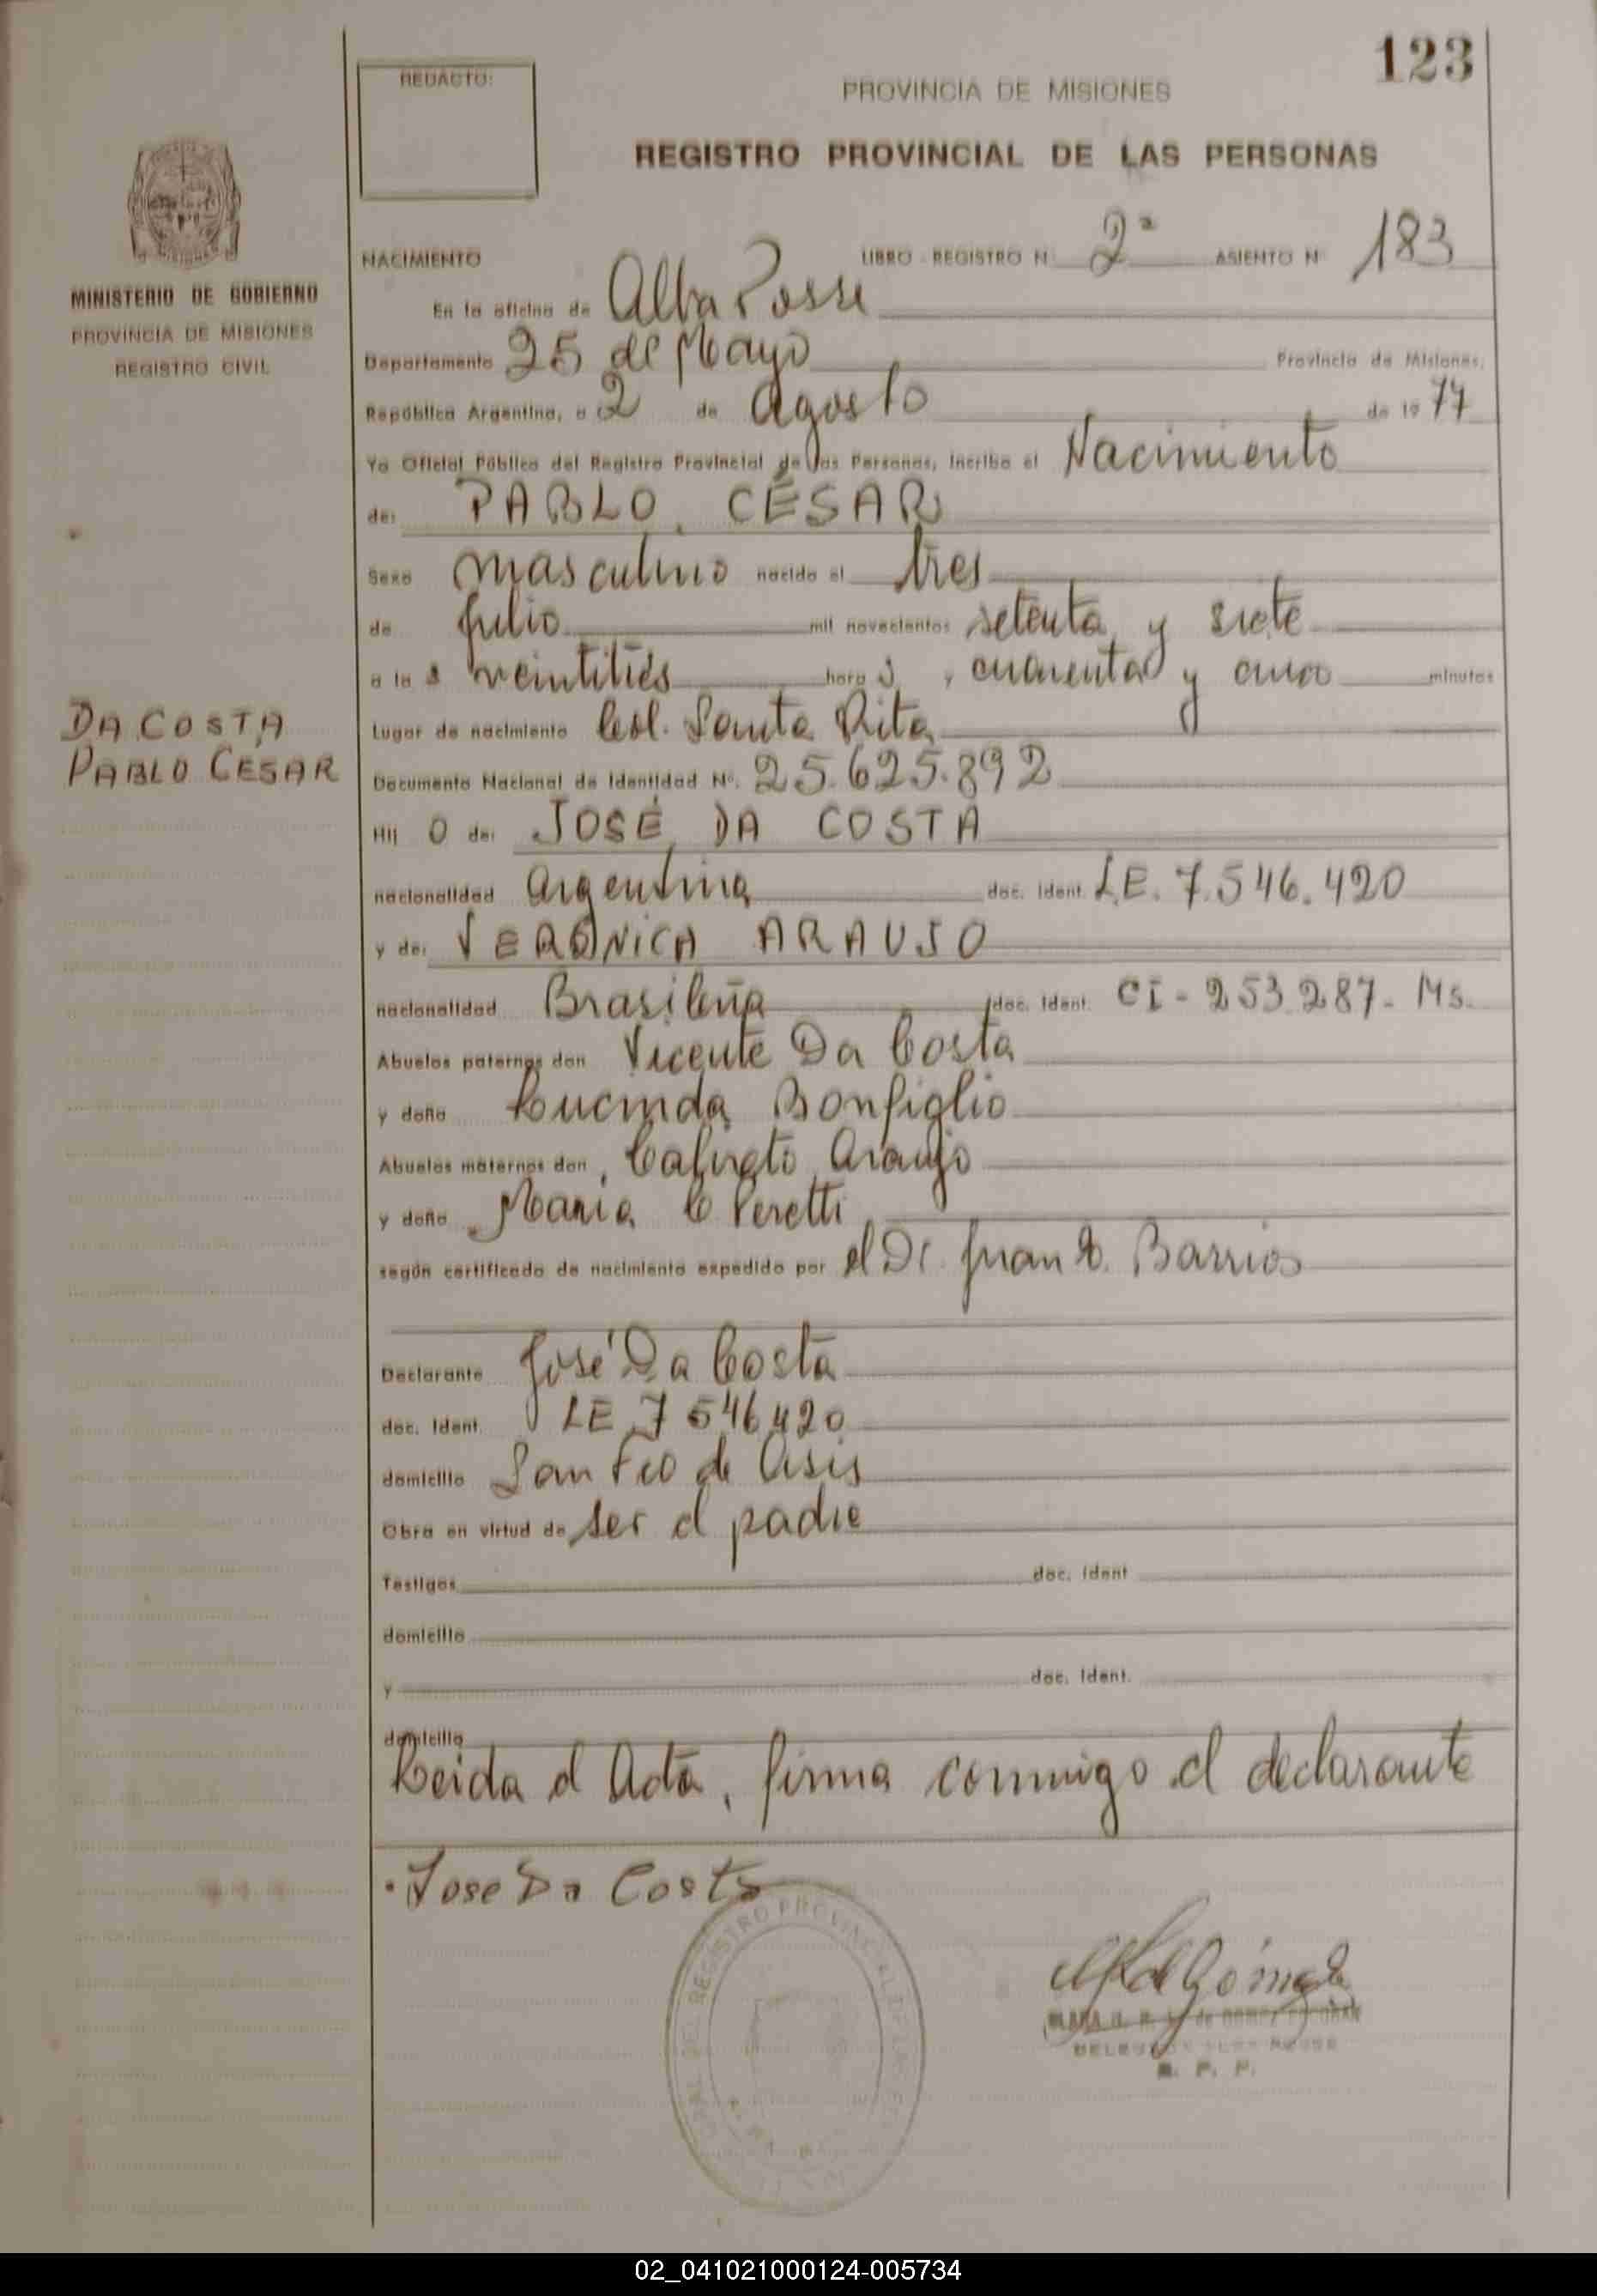 123
REDACTO:
PROVINCIA DE MISIONES
REGISTRO PROVINCIAL DE LAS PERSONAS
MINISTERIO DE GOBIERNO
PROVINCIA DE MISIONES
REGISTRO CIVIL
NACIMIENTO LIBRO - REGISTRO N 2ª ASIENTO N 183
En la oficina de Alba Posse
Departamento 25 de Mayo Provincia de Misiones,
República Argentina, a 2 de Agosto de 19 77
Yo Oficial Público del Registro Provincial de las Personas, incribo el Nacimiento
de: PABLO CÉSAR
Sexo masculino nacido el tres
de Julio mil novecientos setenta y siete
a las veintitrés horas y cuarenta y cinco minutos
Lugar de nacimiento Col. Santa Rita
DA COSTA
PABLO CESAR
Documento Nacional de Identidad Nº. 25.625.892
Hij o de: JOSÉ DA COSTA
nacionalidad Argentina doc. Ident. L.E. 7.546.420
y de: VERÓNICA ARAUJO
nacionalidad Brasileña doc. Ident. CI - 253.287 - Ms.
Abuelos paternos don Vicente Da Costa
y doña Lucinda Bonfiglio
Abuelos maternos don Araujo
y doña María C. Peretti
según certificado de nacimiento expedido por el Dr. Juan Barrios
Declarante José Da Costa
doc. Ident. LE 7546420
domicilio San Fco de Asis
Obra en virtud de ser el padre
Testigos doc. Ident
domicilio
y doc. Ident.
domicilio
Leida el Acta, firma conmigo el declarante
Jose Da Costa
DEL REGISTRO PROVINCIAL DE LAS
R. P. P.
02_041021000124-005734